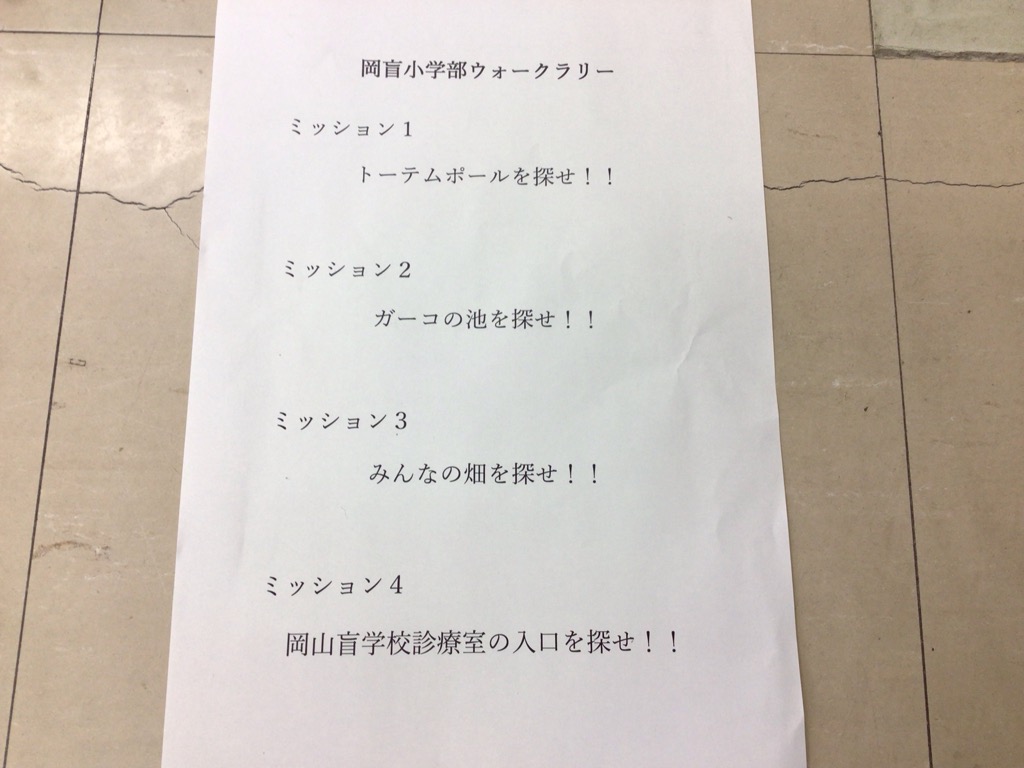 岡盲小学部ウォークラリー
ミッション１
トーテムポールを探せ！！
ミッション２
ガーコの池を探せ！！
ミッション３
みんなの畑を探せ！！
ミッション４
岡山盲学校診療室の入口を探せ！！